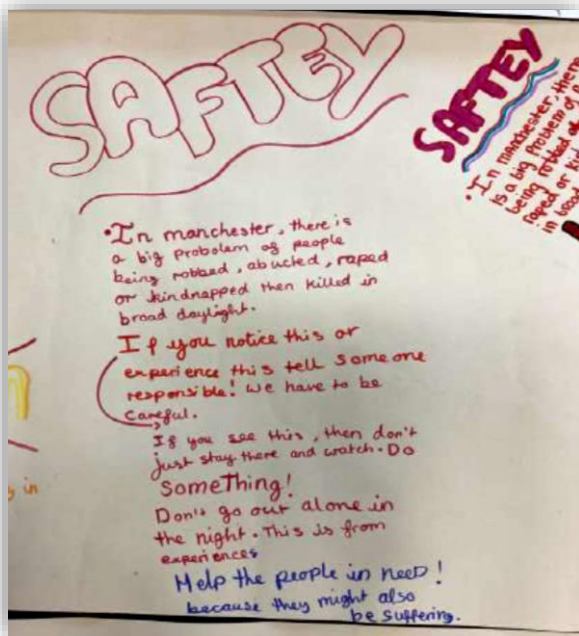 SAFTEY
•In manchester, there is
a big probolem of people
being robbed, abucted, raped
or kindnapped then killed in
broad daylight.
If you notice this or
experience this tell someone
responsible! We have to be
careful.
If you see this, then don't
just stay there and watch. Do
SomeThing!
Don't go out alone in
the night. This is from
experiences
Help the people in need!
because they might also
be suffering.
SAFTEY
•In manchester, there
is a big problem of
being robbed
raped or
in broad
in